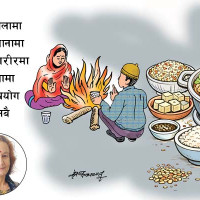 लामा
ानामा
ारीरमा
ामा
योग
बै